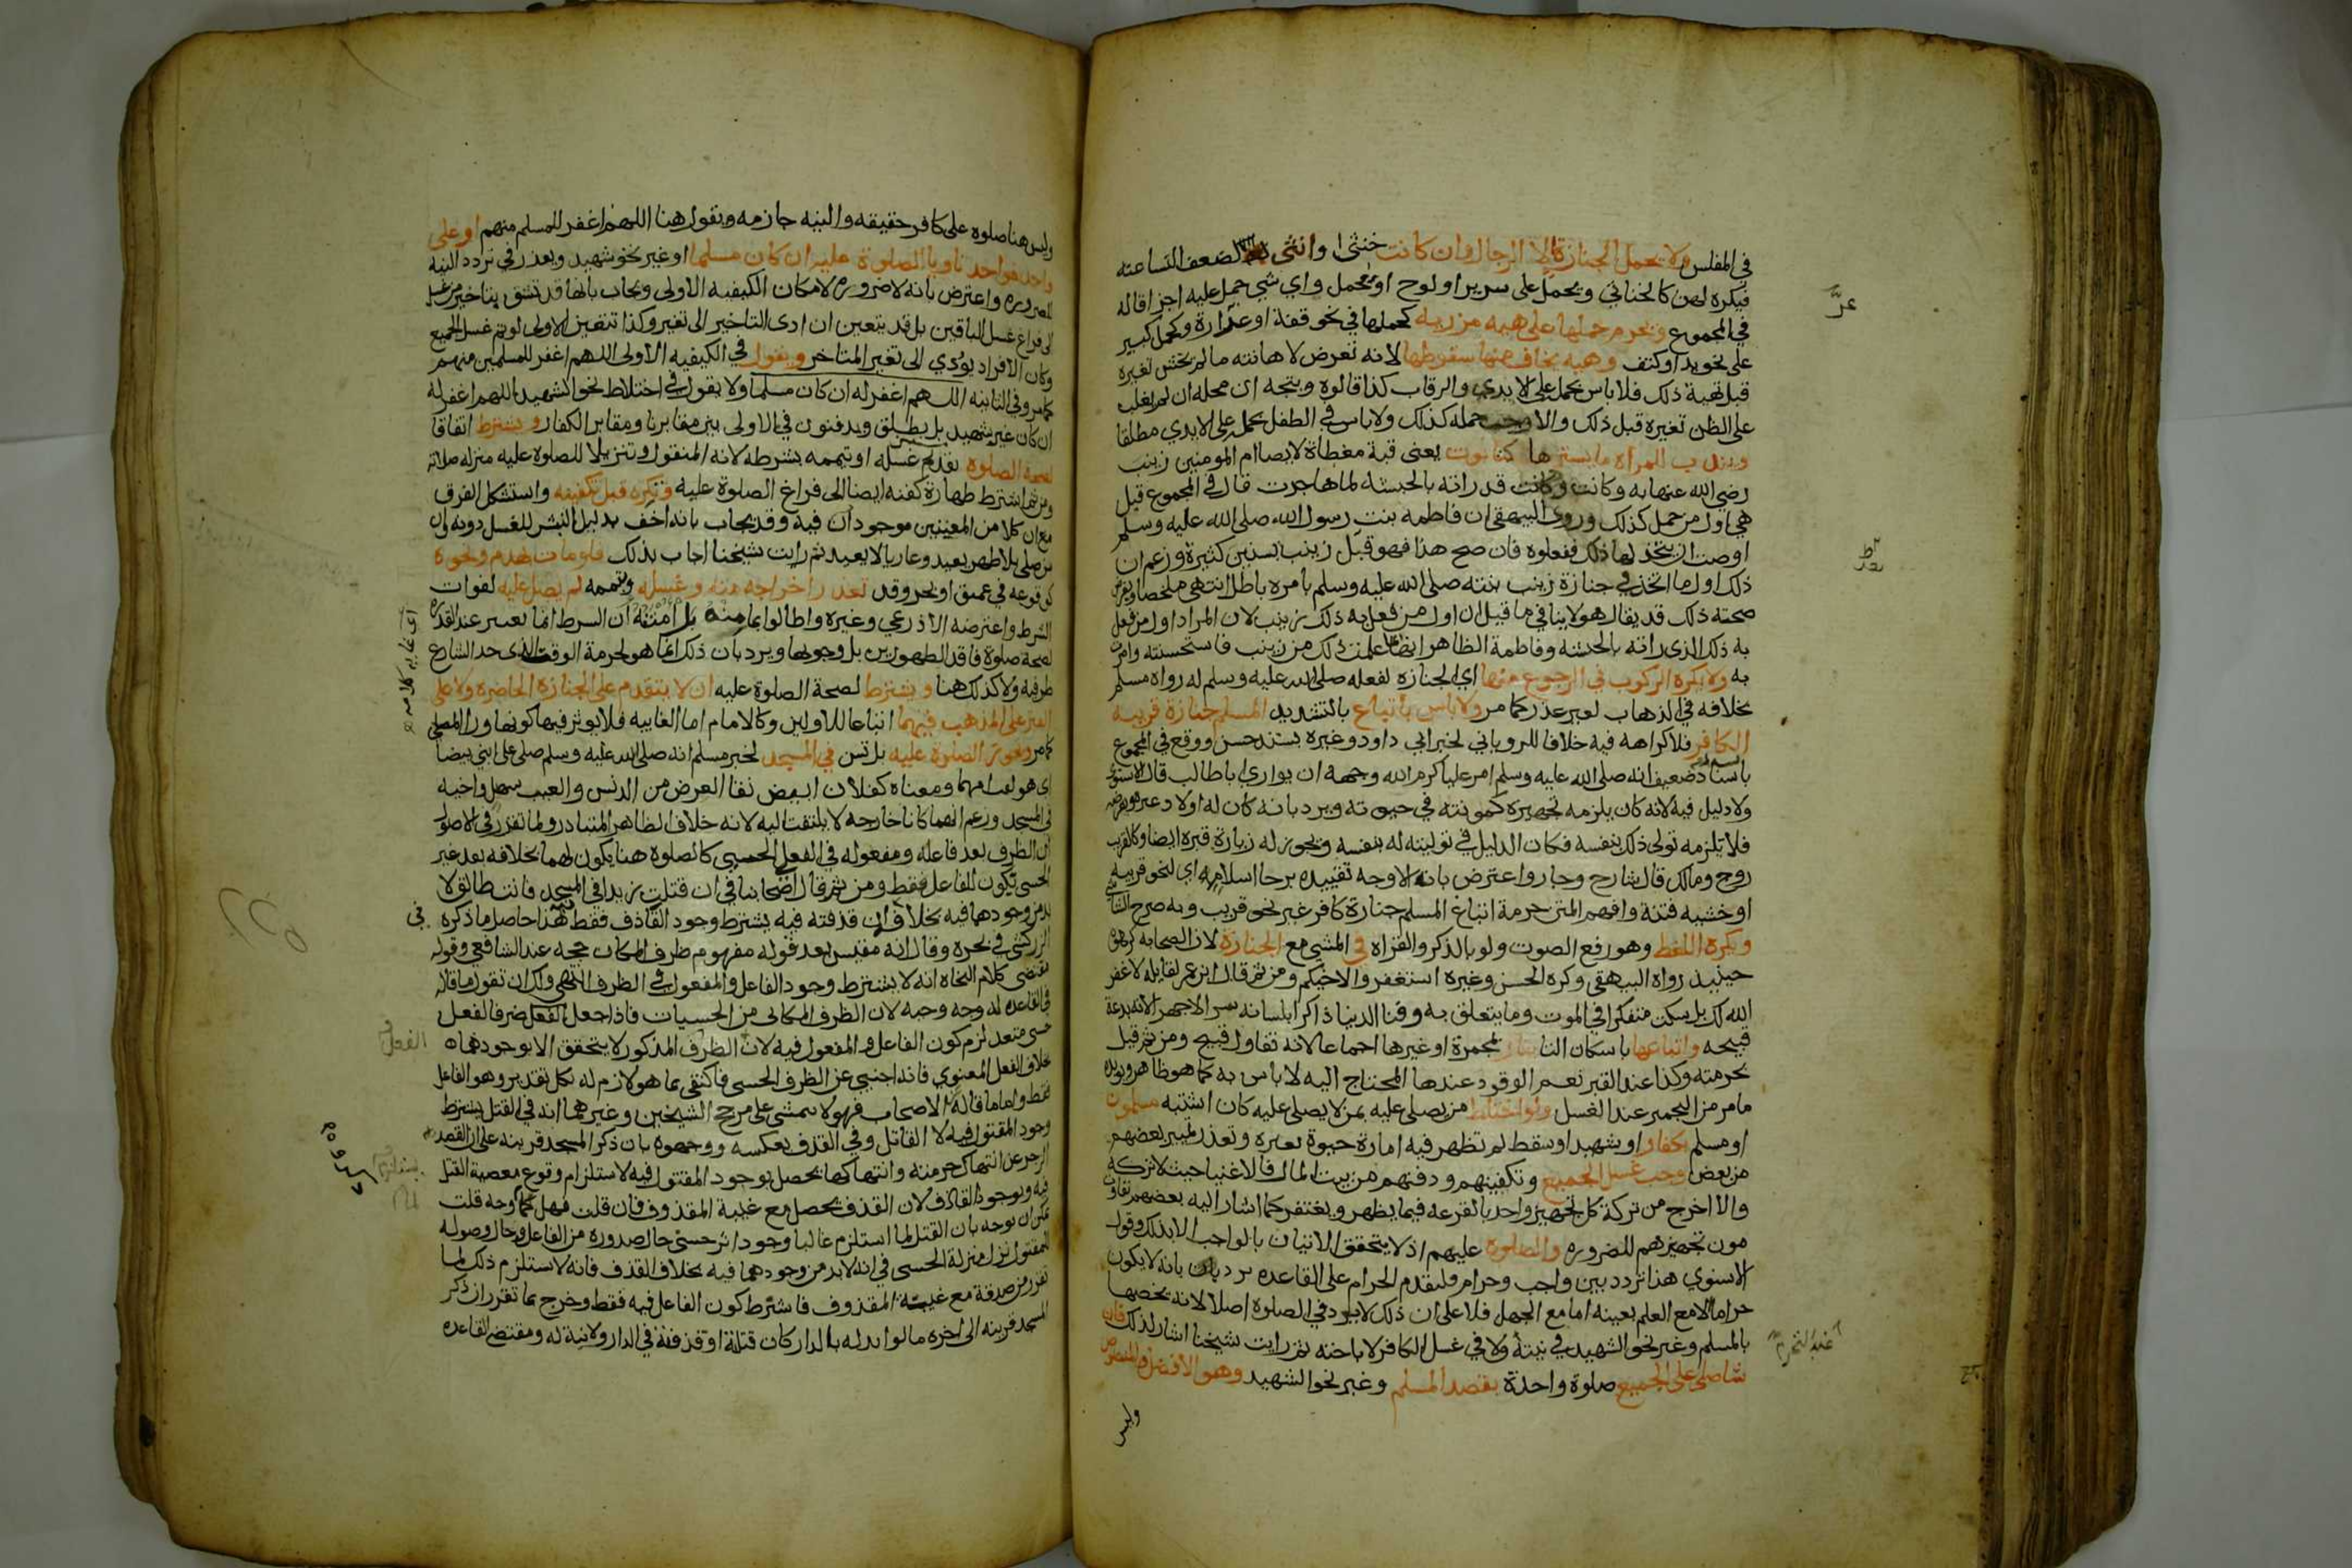 في المفلس ولا يحمل الجنازة إلا الرجال وان كانت خنثى او انثى لضعف النسا عنه
فيكره لهن كالخناثي ويحمل على سرير او لوح او محمل واي شي حمل عليه اجزا قاله
في المجموع ويحرم حملها على هيه مزريه كحملها في نحو قفة او غرارة وكحمل كبير
على نحو يد او كتف وهيه يخاف منها سقوطها لانه تعرض لاهانته ما لم يخش تغيره
قبل تهية ذلك فلا باس بحمله على الايدي والرقاب كذا قالوه ويتجه ان محله ان لم يغلب
على الظن تغيره قبل ذلك والا وجب حمله كذلك ولا باس في الطفل بحمله على الايدي مطلقا
ويندب للمراه ما يسترها كتابوت يعني قبة مغطاة لايصا ام المومنين زينب
رضي الله عنها به وكانت قد راته بالحبشه لما هاجرت قال في المجموع قيل
هي اول من حمل كذلك وروى البيهقي ان فاطمه بنت رسول الله صلى الله عليه وسلم
اوصت ان يتخذ لها ذلك ففعلوه فان صح هذا فهو قبل زينب بسنين كثيرة وزعم ان
ذلك اول ما اتخذ في جنازة زينب بنته صلى الله عليه وسلم بامره باطل انتهى ملخصا وبفرض
صحته ذلك قد يقال هو لا ينافي ما قيل ان اول من فعل به ذلك زينب لان المراد اول من فعل
به ذلك الذي راته بالحبشه وفاطمة الظاهر انها علمت ذلك من زينب فاستحسنته وامرت
به ولا يكره الركوب في الرجوع منها اي الجنازه لفعله صلى الله عليه وسلم له رواه مسلم
بخلافه في الذهاب لغير عذر كما مر ولا باس باتباع بالتشديد المسلم جنازة قريبه
الكافر فلا كراهه فيه خلافا للروياني لخبر ابي داود وغيره بسند حسن ووقع في المجموع
باسناد ضعيف انه صلى الله عليه وسلم امر عليا كرم الله وجهه ان يواري ابا طالب قال الاسنوي
ولا دليل فيه لانه كان يلزمه تجهيزه كمونته في حيوته ويرد بانه كان له اولاد غيره
فلا تلزمه تولي ذلك بنفسه فكان الدليل في توليته له بنفسه ويجوز له زيارة قبره ايضا وكالقريب
زوج ومالك قال شارح وجار واعترض بانه الاوجه تقييده برجا اسلامه اي لنحو قريبه
او خشيه فتنة وافهم المتن حرمة اتباع المسلم جنازة كافر غير نحو قريب وبه صرح الشاشي
ويكره اللغط وهو رفع الصوت ولو بالذكر والقراه في المشي مع الجنازة لان الصحابه كرهوه
حينيذ رواه البيهقي وكره الحسن وغيره استغفروا لاخيكم ومن ثم قال ابن عمر لقايله لا غفر
الله لك بل يسكت متفكرا في الموت وما يتعلق به وفنا الدنيا ذاكرا بلسانه سرا لا جهرا لانه بدعة
قبيحه واتباعها باسكان التا بنار بمجمرة او غيرها اجماعا لانه تفاول قبيح ومن ثم قيل
بحرمته وكذا عند القبر نعم الوقود عندها المحتاج اليه لا باس به كما هو ظاهر ويويده
ما مر من التجمير عند الغسل ولو اختلط من يصلى عليه بمن لا يصلى عليه كان اشتبه مسلمون
او مسلم بكفار او شهيد او سقط لم تظهر فيه امارة حيوة بغيره وتعذر تمييز بعضهم
من بعض وجب غسل الجميع وتكفينهم ودفنهم من بيت المال فالاغنيا حيث لا تركه
والا اخرج من تركة كل تجهيز واحد بالقرعه فيما يظهر ويغتفر كما اشار اليه بعضهم تفاوت
مون تجهيزهم للضروره والصلوة عليهم اذ لا يتحقق الاتيان بالواجب الا بذلك وقول
الاسنوي هذا تردد بين واجب وحرام وليقدم الحرام على القاعده يرد بان بانه لا يكون
حراما الا مع العلم بعينه اما مع الجهل فلا على ان ذلك لا يوجد في الصلوة اصلا لانه يخصها
بالمسلم وغير نحو الشهيد في نيته ولا في غسل الكافر لاباحته ثم رايت شيخنا اشار لذلك فان
شا صلى على الجميع صلوة واحدة بقصد المسلم وغير نحو الشهيد وهو الافضل والمنصوص
وليس
وليس هنا صلوه على كافر حقيقه والنيه جازمه ويقول هنا اللهم اغفر للمسلم منهم او على
واحد فواحد ناويا الصلوة عليه ان كان مسلما او غير نحو شهيد ويعذر في تردد النيه
للضروره واعترض بانه لا ضروره لامكان الكيفيه الاولى ويجاب بانها قد تشق بتاخير من غسل
الى فراغ غسل الباقين بل قد يتعين ان ادى التاخير الى تغير وكذا تتعين الاولى لو تم غسل الجميع
وكان الافراد يودي الى تغير المتاخر ويقول في الكيفيه الاولى اللهم اغفر للمسلمين منهم
كما مر وفي الثانيه اللهم اغفر له ان كان مسلما ولا يقول في اختلاط نحو الشهيد اللهم اغفر له
ان كان غير شهيد بل يطلق ويدفنون في الاولى بين مقابرنا ومقابر الكفار ويشترط اتفاقا
لصحة الصلوه تقدم غسله او تيممه بشرطه لانه المنقول وتنزيلا للصلوه عليه منزله صلاته
ومن ثم اشترط طهارة كفنه ايضا الى فراغ الصلوة عليه وتكره قبل تكفينه واستشكل الفرق
مع ان كلا من المعنيين موجودان فيه وقد يجاب بانه اخف بدليل النبش للغسل دونه وان
من صلى بلا طهر يعيد وعاريا لا يعيد ثم رايت شيخنا اجاب بذلك فلو مات بهدم ونحوه
كوقوعه في عميق او بحر وقد تعذر اخراجه منه وغسله وتيممه لم يصل عليه لفوات
الشرط واعترضه الاذرعي وغيره واطالوا بما منه بل امتنه ان الشرط انما يعتبر عند القدره
لصحة صلوة فاقد الطهورين بل وجوبها ويرد بان ذلك انما هو لحرمة الوقت الذي حد الشارع
طرفيه ولا كذلك هنا ويشترط لصحة الصلوة عليه ان لا يتقدم على الجنازه الحاضره ولا على
القبر على المذهب فيهما اتباعا للاولين وكالامام اما الغايبه فلا يوثر فيها كونها ورا المصلي
كما مر ويجوز الصلوة عليه بل تسن في المسجد لخبر مسلم انه صلى الله عليه وسلم صلى على ابني بيضا
اي هو لقب امهما ومعناه كفلان ابيض نقا العرض من الدنس والعيب سهل واخيه
في المسجد وزعم انهما كانا خارجه لا يلتفت اليه لانه خلاف الظاهر المتبادر ولما تقرر في الاصول
ان الظرف بعد فاعله ومفعوله في الفعل الحسي كالصلوه هنا يكون لهما بخلافه بعد غير
الحسي يكون للفاعل فقط ومن ثم قال اصحابنا في ان قتلت زيدا في المسجد فانت طالق لا
بد من وجودهما فيه بخلاف ان قذفته فيه يشترط وجود القاذف فقط هذا حاصل ما ذكره
الزركشي في بحره وقال انه مقتبس بعد قوله مفهوم ظرف المكان حجه عند الشافعي وقوله
يقتضي كلام النحاه انه لا يشترط وجود الفاعل والمفعول في الظرف انتهى ولك ان تقول ما قاله
في القاعده له وجه وجيه لان الظرف المكاني من الحسيات فاذا جعل لفعل ظرفا لفعل
حسي متعد لزم كون الفاعل والمفعول فيه لان الظرف المذكور لا يتحقق الا بوجودهما
خلاف الفعل المعنوي فانه اجنبي عن الظرف الحسي فاكتفى بما هو لازم له بكل تقدير وهو الفاعل
فقط واما ما قاله الاصحاب فهو لا يتمشى على مرجح الشيخين وغيرهما انه في القتل يشترط
وجود المقتول فيه لا القاتل وفي القذف بعكسه ووجهوه بان ذكر المسجد قرينه على ان القصد
الزجر عن انتهاك حرمته وانتهاكها يحصل بوجود المقتول فيه لاستلزام وقوع معصية القتل
فيه وبوجود القاذف لان القذف يحصل مع غيبة المقذوف فان قلت فهل لها وجه قلت
يمكن ان يوجه بان القتل لما استلزم غالبا وجود اثر حسي حال صدوره من الفاعل وحال وصوله
للمقتول نزل منزلة الحسي في انه لا بد من وجودهما فيه بخلاف القذف فانه لا استلزم ذلك لما
تقرر من صدقه مع غيبة المقذوف فاشترط كون الفاعل فيه فقط وخرج بما تقرر ان ذكر
المسجد قرينه الى اخره ما لو ابدله بالدار كان قتلته او قذفته في الدار ولا نية له ومقتضى القاعده